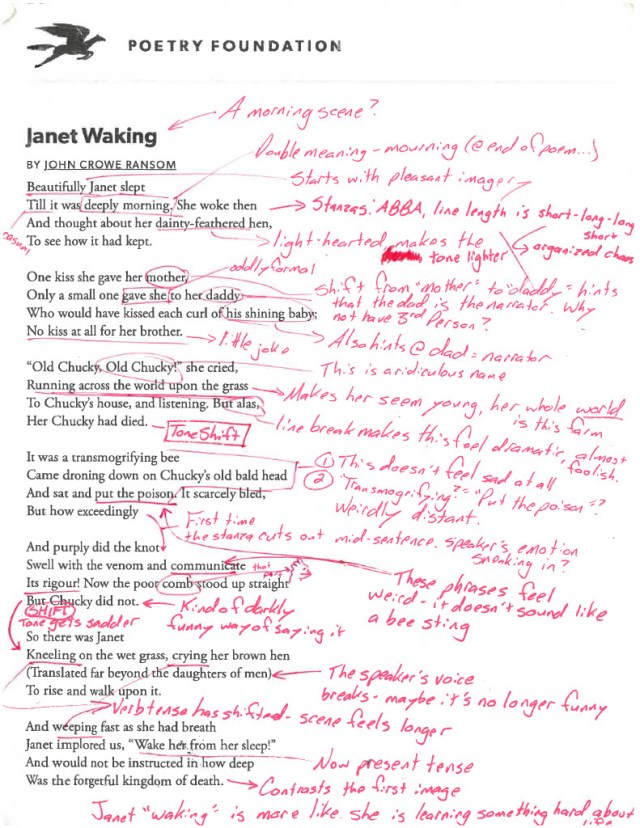 POETRY FOUNDATION
A morning scene?
Janet Waking
Double meaning - mourning (@ end of poem...)
BY JOHN CROWE RANSOM
Starts with pleasant imagery
Beautifully Janet slept
Till it was deeply morning. She woke then
Stanzas: ABBA, line length is short-long-long
short
And thought about her dainty-feathered hen,
To see how it had kept.
casual
light-hearted makes the
tone lighter
organized chaos
oddly formal
One kiss she gave her mother,
Only a small one gave she to her daddy
Who would have kissed each curl of his shining baby;
No kiss at all for her brother.
Shift from "mother" to "daddy" = hints
that the dad is the narrator. Why
not have 3rd Person?
little joke
Also hints @ dad = narrator
"Old Chucky, Old Chucky!" she cried,
This is a ridiculous name
Running across the world upon the grass
Makes her seem young, her whole world
is this farm
To Chucky's house, and listening. But alas,
Her Chucky had died.
Tone Shift
line break makes this feel dramatic, almost
foolish.
It was a transmogrifying bee
Came droning down on Chucky's old bald head
And sat and put the poison. It scarcely bled,
But how exceedingly
1 This doesn't feel sad at all
2 "Transmogrifying?" = "Put the poison"?
Weirdly distant.
First time
the stanza cuts out mid-sentence. speaker's emotion
sneaking in?
And purply did the knot
Swell with the venom and communicate
that
Its rigour! Now the poor comb stood up straight
But Chucky did not.
These phrases feel
weird - it doesn't sound like
a bee sting
Kind of darkly
funny way of saying it
SHIFT
Tone gets sadder
So there was Janet
Kneeling on the wet grass, crying her brown hen
(Translated far beyond the daughters of men)
To rise and walk upon it.
The speaker's voice
breaks - maybe it's no longer funny
Verb tense has shifted - scene feels longer
And weeping fast as she had breath
Janet implored us, "Wake her from her sleep!"
And would not be instructed in how deep
Was the forgetful kingdom of death.
Now present tense
Contrasts the first image
Janet "waking" is more like she is learning something hard about
life